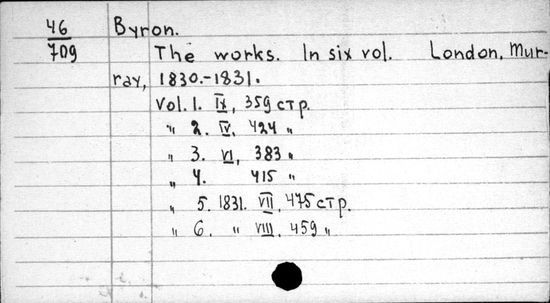 46 Byron.
709 The works. In six vol. London, Mur-
ray, 1830.-1831.
Vol. 1. IX, 359 стр.
" 2. IV, 424 "
" 3. VI, 383 "
" 4. 415 "
" 5. 1831. VII, 475 стр.
" 6. " VIII. 459 "